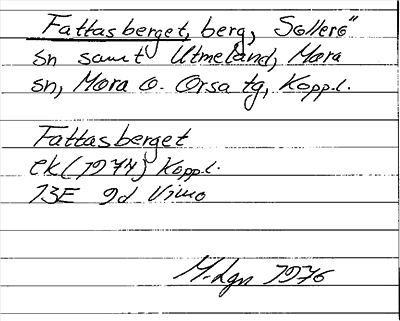 Fattasberget, berg, Sollerö
sn samt Utmeland, Mora
sn, Mora o. Orsa tg, Kopp.l.
Fattasberget
ek (1974) Kopp.l.
13E 9d Vimo
M.Lgn 1976